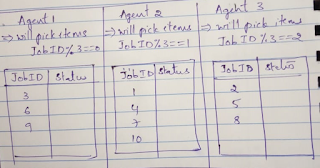 Agent 1
⇒ will pick items
JobID%3==0
JobID Status
3
6
9
Agent 2
⇒ will pick items
JobID%3==1
JobID Status
1
4
7
10
Agent 3
⇒ will pick items
JobID%3==2
JobID Status
2
5
8